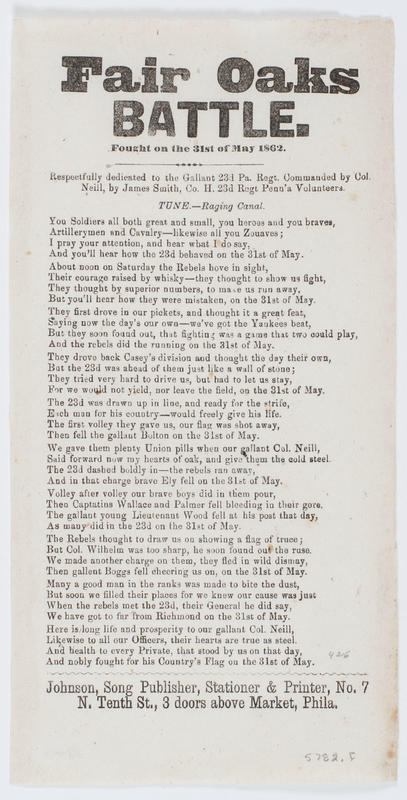 Fair Oaks
BATTLE.
Fought on the 31st of May 1862.
Respectfully dedicated to the Gallant 23d Pa. Regt. Commanded by Col.
Neill, by James Smith, Co. H. 23d Regt Penn'a Volunteers.
TUNE.—Raging Canal.
You Soldiers all both great and small, you heroes and you braves,
Artillerymen and Cavalry—likewise all you Zouaves;
I pray your attention, and hear what I do say,
And you'll hear how the 23d behaved on the 31st of May.
About noon on Saturday the Rebels hove in sight,
Their courage raised by whisky—they thought to show us fight,
They thought by superior numbers, to make us run away,
But you'll hear how they were mistaken, on the 31st of May.
They first drove in our pickets, and thought it a great feat,
Saying now the day's our own—we've got the Yankees beat,
But they soon found out, that fighting was a game that two could play,
And the rebels did the running on the 31st of May.
They drove back Casey's division and thought the day their own,
But the 23d was ahead of them just like a wall of stone;
They tried very hard to drive us, but had to let us stay,
For we would not yield, nor leave the field, on the 31st of May.
The 23d was drawn up in line, and ready for the strife,
Each man for his country—would freely give his life.
The first volley they gave us, our flag was shot away,
Then fell the gallant Bolton on the 31st of May.
We gave them plenty Union pills when our gallant Col. Neill,
Said forward now my hearts of oak, and give them the cold steel.
The 23d dashed boldly in—the rebels ran away,
And in that charge brave Ely fell on the 31st of May.
Volley after volley our brave boys did in them pour,
Then Captatins Wallace and Palmer fell bleeding in their gore.
The gallant young Lieutenant Wood fell at his post that day,
As many did in the 23d on the 31st of May.
The Rebels thought to draw us on showing a flag of truce;
But Col. Wilhelm was too sharp, he soon found out the ruse.
We made another charge on them, they fled in wild dismay,
Then gallent Boggs fell cheering us on, on the 31st of May.
Many a good man in the ranks was made to bite the dust,
But soon we filled their places for we knew our cause was just
When the rebels met the 23d, their General he did say,
We have got to far from Richmond on the 31st of May.
Here is long life and prosperity to our gallant Col. Neill,
Likewise to all our Officers, their hearts are true as steel.
And health to every Private, that stood by us on that day,
And nobly fought for his Country's Flag on the 31st of May.
425
Johnson, Song Publisher, Stationer & Printer, No. 7
N. Tenth St., 3 doors above Market, Phila.
5782.F